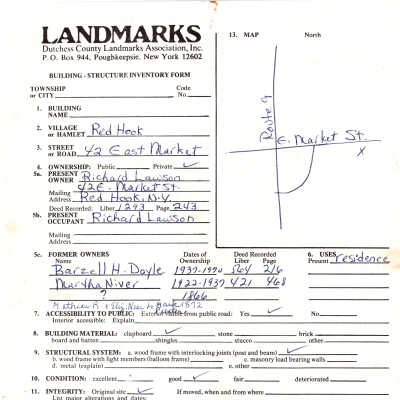 LANDMARKS
Dutchess County Landmarks Association, Inc.
P. O. Box 944, Poughkeepsie, New York 12602
BUILDING - STRUCTURE INVENTORY FORM
TOWNSHIP or CITY Code No.
1. BUILDING NAME
2. VILLAGE or HAMLET Red Hook
3. STREET or ROAD 42 East Market
4. OWNERSHIP: Public Private ✓
5a. PRESENT OWNER Richard Lawson
Mailing Address 42 E. Market St.
Red Hook, N.Y.
Deed Recorded: Liber 1293 Page 243
5b. PRESENT OCCUPANT Richard Lawson
Mailing Address
13. MAP North
Route 9
E. Market St.
X
5c. FORMER OWNERS Dates of Ownership Deed Recorded
Name Liber Page
Barzell H. Doyle 564 216
Martha Niver 1922-1937 421 468
? 1866
1872
6. USES
Present residence
7. ACCESSIBILITY TO PUBLIC: Exterior visible from public road: Yes ✓ No
Interior accessible: Explain
8. BUILDING MATERIAL: clapboard ✓ stone brick
board and batten shingles stucco other
9. STRUCTURAL SYSTEM: a. wood frame with interlocking joints (post and beam) ✓
b. wood frame with light members (balloon frame) c. masonry load bearing walls
d. metal (explain) e. other
10. CONDITION: excellent good ✓ fair deteriorated
11. INTEGRITY: Original site ✓ If moved, when and from where
List major alterations and dates: